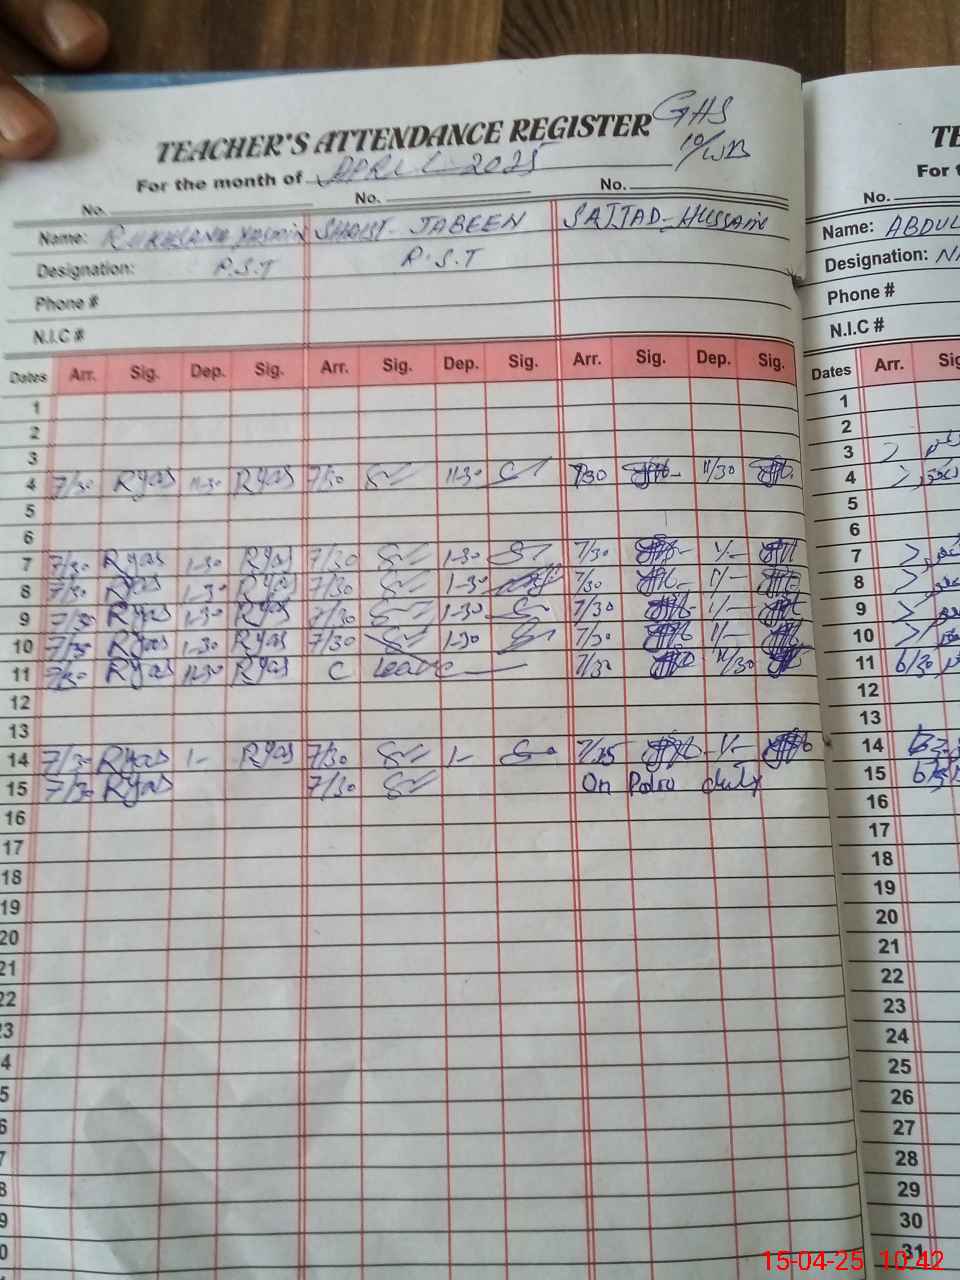 GHS
TEACHER'S ATTENDANCE REGISTER 10/WB
For the month of APRIL 2025
No. No. No.
Name: RUKHSANA YASMIN JABEEN SAJJAD HUSSAIN
Designation: P.S.T P.S.T
Phone #
N.I.C #
Dates Arr. Sig. Dep. Sig. Arr. Sig. Dep. Sig. Arr. Sig. Dep. Sig.
1
2
3
4 7/30 Ryas 11-30 Ryas 7/30 11-30 7/30 11/30
5
6
7 7/30 Ryas 1-30 Ryas 7/30 1-30 7/30 1/-
8 7/30 Ryas 1-30 Ryas 7/30 1-30 7/30 1/-
9 7/30 Ryas 1-30 Ryas 7/30 1-30 7/30 1/-
10 7/30 Ryas 1-30 Ryas 7/30 1-30 7/30 1/-
11 7/30 Ryas 11-30 Ryas C Leave 7/30 11/30
12
13
14 7/30 Ryas 1- Ryas 7/30 1- 7/25 1/-
15 7/30 Ryas 7/30 On Polio duty
16
17
18
19
20
21
22
23
4
5
6
7
8
9
0
TE
For t
No.
Name: ABDUL
Designation: NA
Phone #
N.I.C #
Dates Arr. Sig
1
2
3
4
5
6
7
8
9
10
11 6/30
12
13
14
15
16
17
18
19
20
21
22
23
24
25
26
27
28
29
30
31
15-04-25 10:42